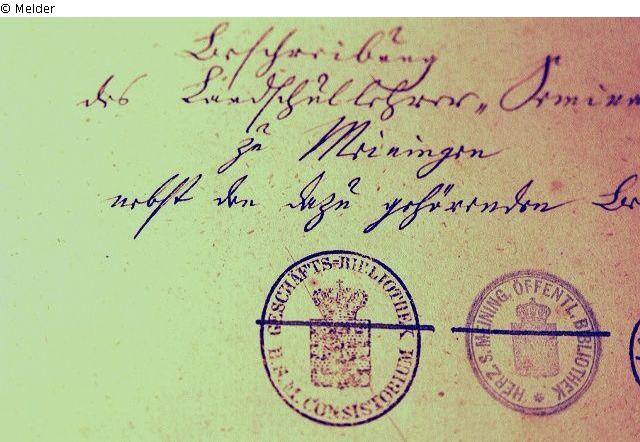 © Melder
Beschreibung
des Landschullehrer„ Semina
zu Meiningen
nebst den dazu gehörenden Be
GESCHÄFTS-BIBLIOTHEK
H. S. M. CONSISTORIUM
HERZ. S. MEINING. ÖFFENTL. BIBLIOTHEK